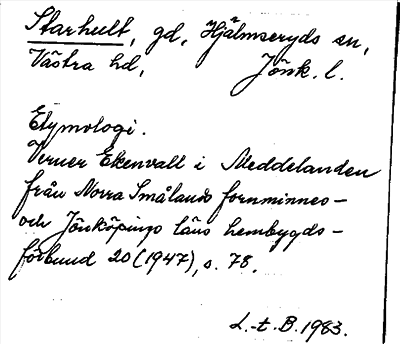 Starhult, gd, Hjälmseryds sn,
Västra hd, Jönk. l.
Etymologi.
Verner Ekenvall i Meddelanden
från Norra Smålands fornminnes-
och Jönköpings läns hembygds-
förbund 20 (1947), s. 78.
L.-t. B. 1983.